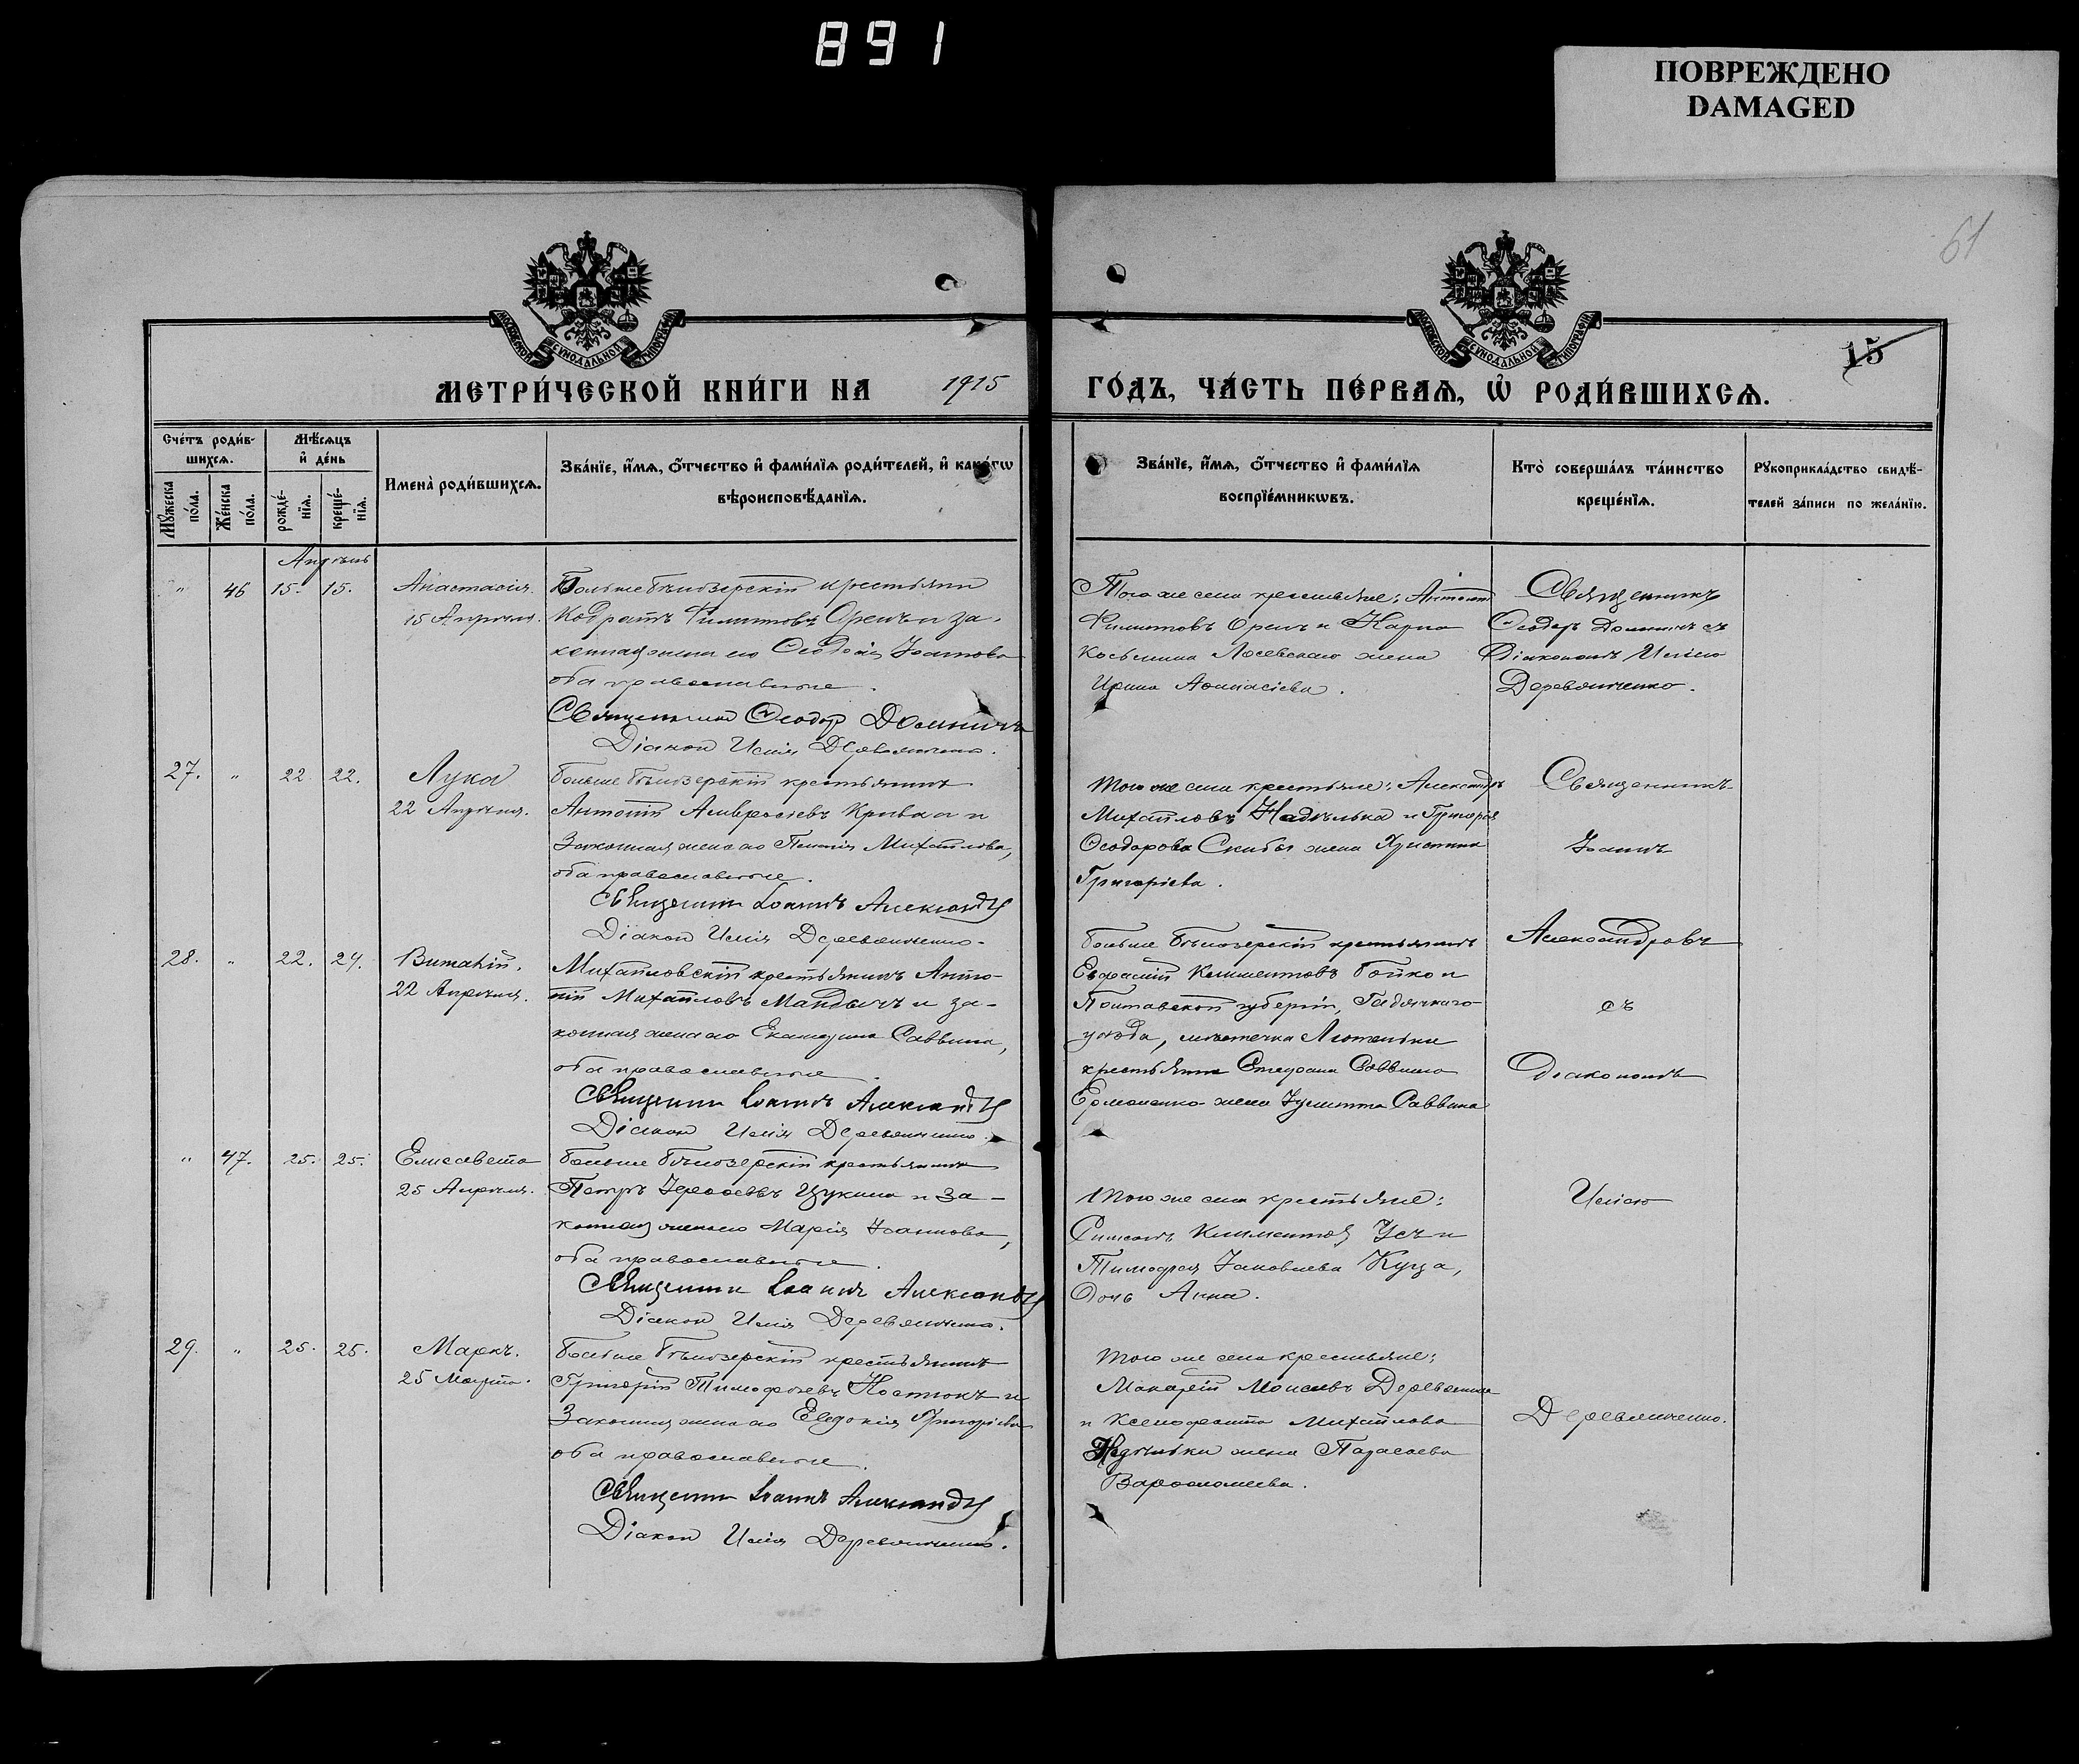 891
ПОВРЕЖДЕНО
DAMAGED
61
МОСКОВСКОЙ СѴНОДАЛЬНОЙ ТИПОГРАФІИ
МОСКОВСКОЙ СѴНОДАЛЬНОЙ ТИПОГРАФІИ
15
МЕТРИ́ЧЕСКОЙ КНИ́ГИ НА 1915 ГО́ДЪ, ЧА́СТЬ ПЕ́РВАѦ, Ѡ҆ РОДИ́ВШИХСѦ.
Сче́тъ роди́в-
шихсѧ.
Мѣ́сѧцъ
и҆ де́нь
Мꙋ́жеска по́ла.
Же́нска по́ла.
рожде́-
нїѧ.
креще́-
нїѧ.
Имена̀ роди́вшихсѧ.
Зва́нїе, и҆́мѧ, ѻ҆́тчество и҆ фами́лїѧ роди́телей, и҆ како́гѡ
вѣроисповѣ́данїѧ.
Зва́нїе, и҆́мѧ, ѻ҆́тчество и҆ фами́лїѧ
воспрїе́мникѡвъ.
Кто̀ соверша́лъ та́инство
креще́нїѧ.
Рꙋкоприкла́дство свидѣ́-
телей за́писи по жела́нїю.
Апрѣль
" 46 15. 15. Анастасія.
15 Апрѣля.
Больше Бѣлозерскій крестьянин
Кодратъ Филиптовъ Орелъ и за-
конная жена его Ѳеодосія Іоаннова
оба православные.
Священник Ѳеодор Доминичъ
Діакон Илія Деревянченко.
Того же села крестьяне: Антоній
Филиптовъ Орелъ и Карпа
Косьмина Лосевскаго жена
Ирина Аѳанасіева.
Священникъ
Ѳеодоръ Доминичъ съ
Діакономъ Иліею
Деревянченко.
27. " 22 22. Лука
22 Апрѣля.
Больше Бѣлозерскій крестьянинъ
Антоній Амвросіевъ Кривка и
Законная жена его Пелагія Михайлова,
оба православные.
Священник Іоаннъ Александр
Діакон Илія Деревянченко.
Того же села крестьяне: Александръ
Михайловъ Недѣлька и Григорія
Ѳеодорова Скибы жена Христина
Григоріева.
Священникъ
Іоаннъ
Александровъ
съ
Діакономъ
Иліею
Деревянченко.
28. " 22. 24. Виталій.
22 Апрѣля.
Михайловскій крестьянинъ Анто-
ній Михайловъ Мандычъ и за-
конная жена его Екатерина Саввина,
оба православные.
Священник Іоаннъ Александр
Діакон Илія Деревянченко.
Больше Бѣлозерскій крестьянинъ
Евфимій Климентовъ Бойко и
Полтавской губерніи, Гадячскаго
уѣзда, мѣстечка Лютеньки
крестьянина Стефана Саввина
Ермоленко жена Іулитта Саввина
" 47. 25. 25. Елисавета
25 Апрѣля.
Больше Бѣлозерскій крестьянинъ
Петръ Іероѳеевъ Цукина и за-
конная жена его Марія Іоаннова,
оба православные.
Священник Іоаннъ Александр
Діакон Илія Деревянченко.
Того же села крестьяне:
Симеонъ Климентов Усъ и
Тимофея Іаковлева Куца,
дочь Анна.
29. " 25. 25. Маркъ.
25 Марта.
Больше Бѣлозерскій крестьянинъ
Григорій Тимофѣевъ Костюкъ и
Законная жена его Евдокія Григоріева
оба православные.
Священник Іоаннъ Александр
Діакон Илія Деревянченко.
Того же села крестьяне:
Макарій Моисеевъ Деревянко
и Ксенофонта Михайлова
Недѣльки жена Параскева
Варѳоломеева.